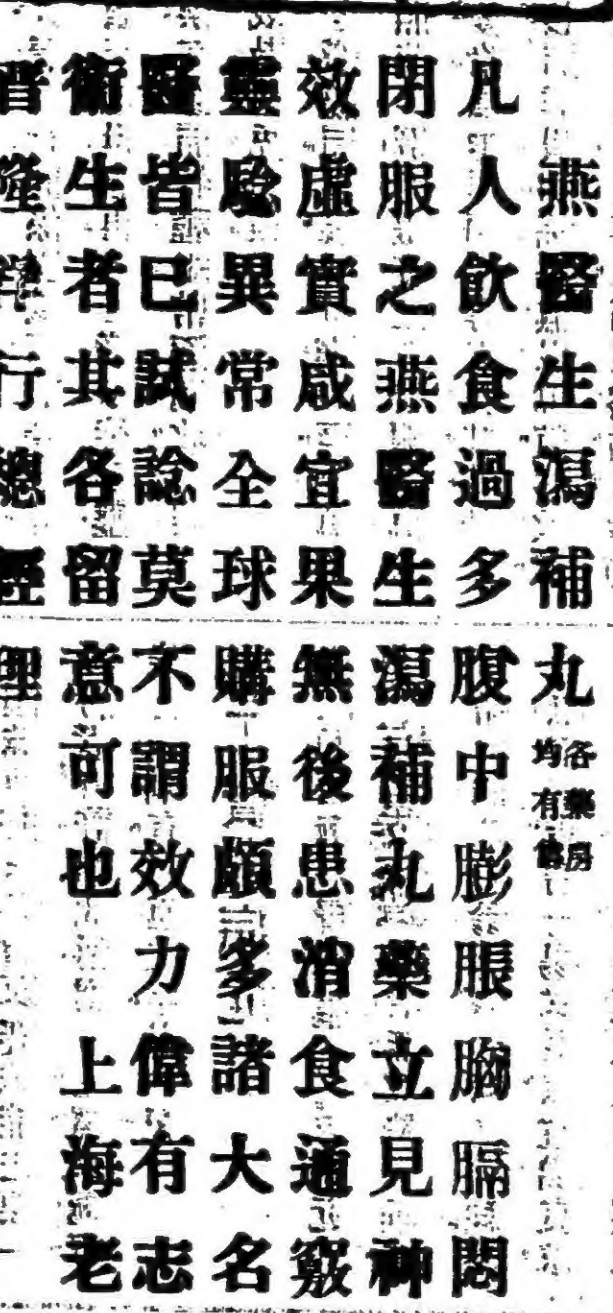 燕醫生瀉補丸 各藥房均有售
凡人飲食過多腹中膨脹胸膈悶
閉服之燕醫生瀉補丸藥立見神
效虛實咸宜果無後患消食通竅
靈驗異常全球購服頗多諸大名
醫皆已試諗莫不謂效力偉有志
衞生者其各留意可也　上海老
晋隆洋行總經理